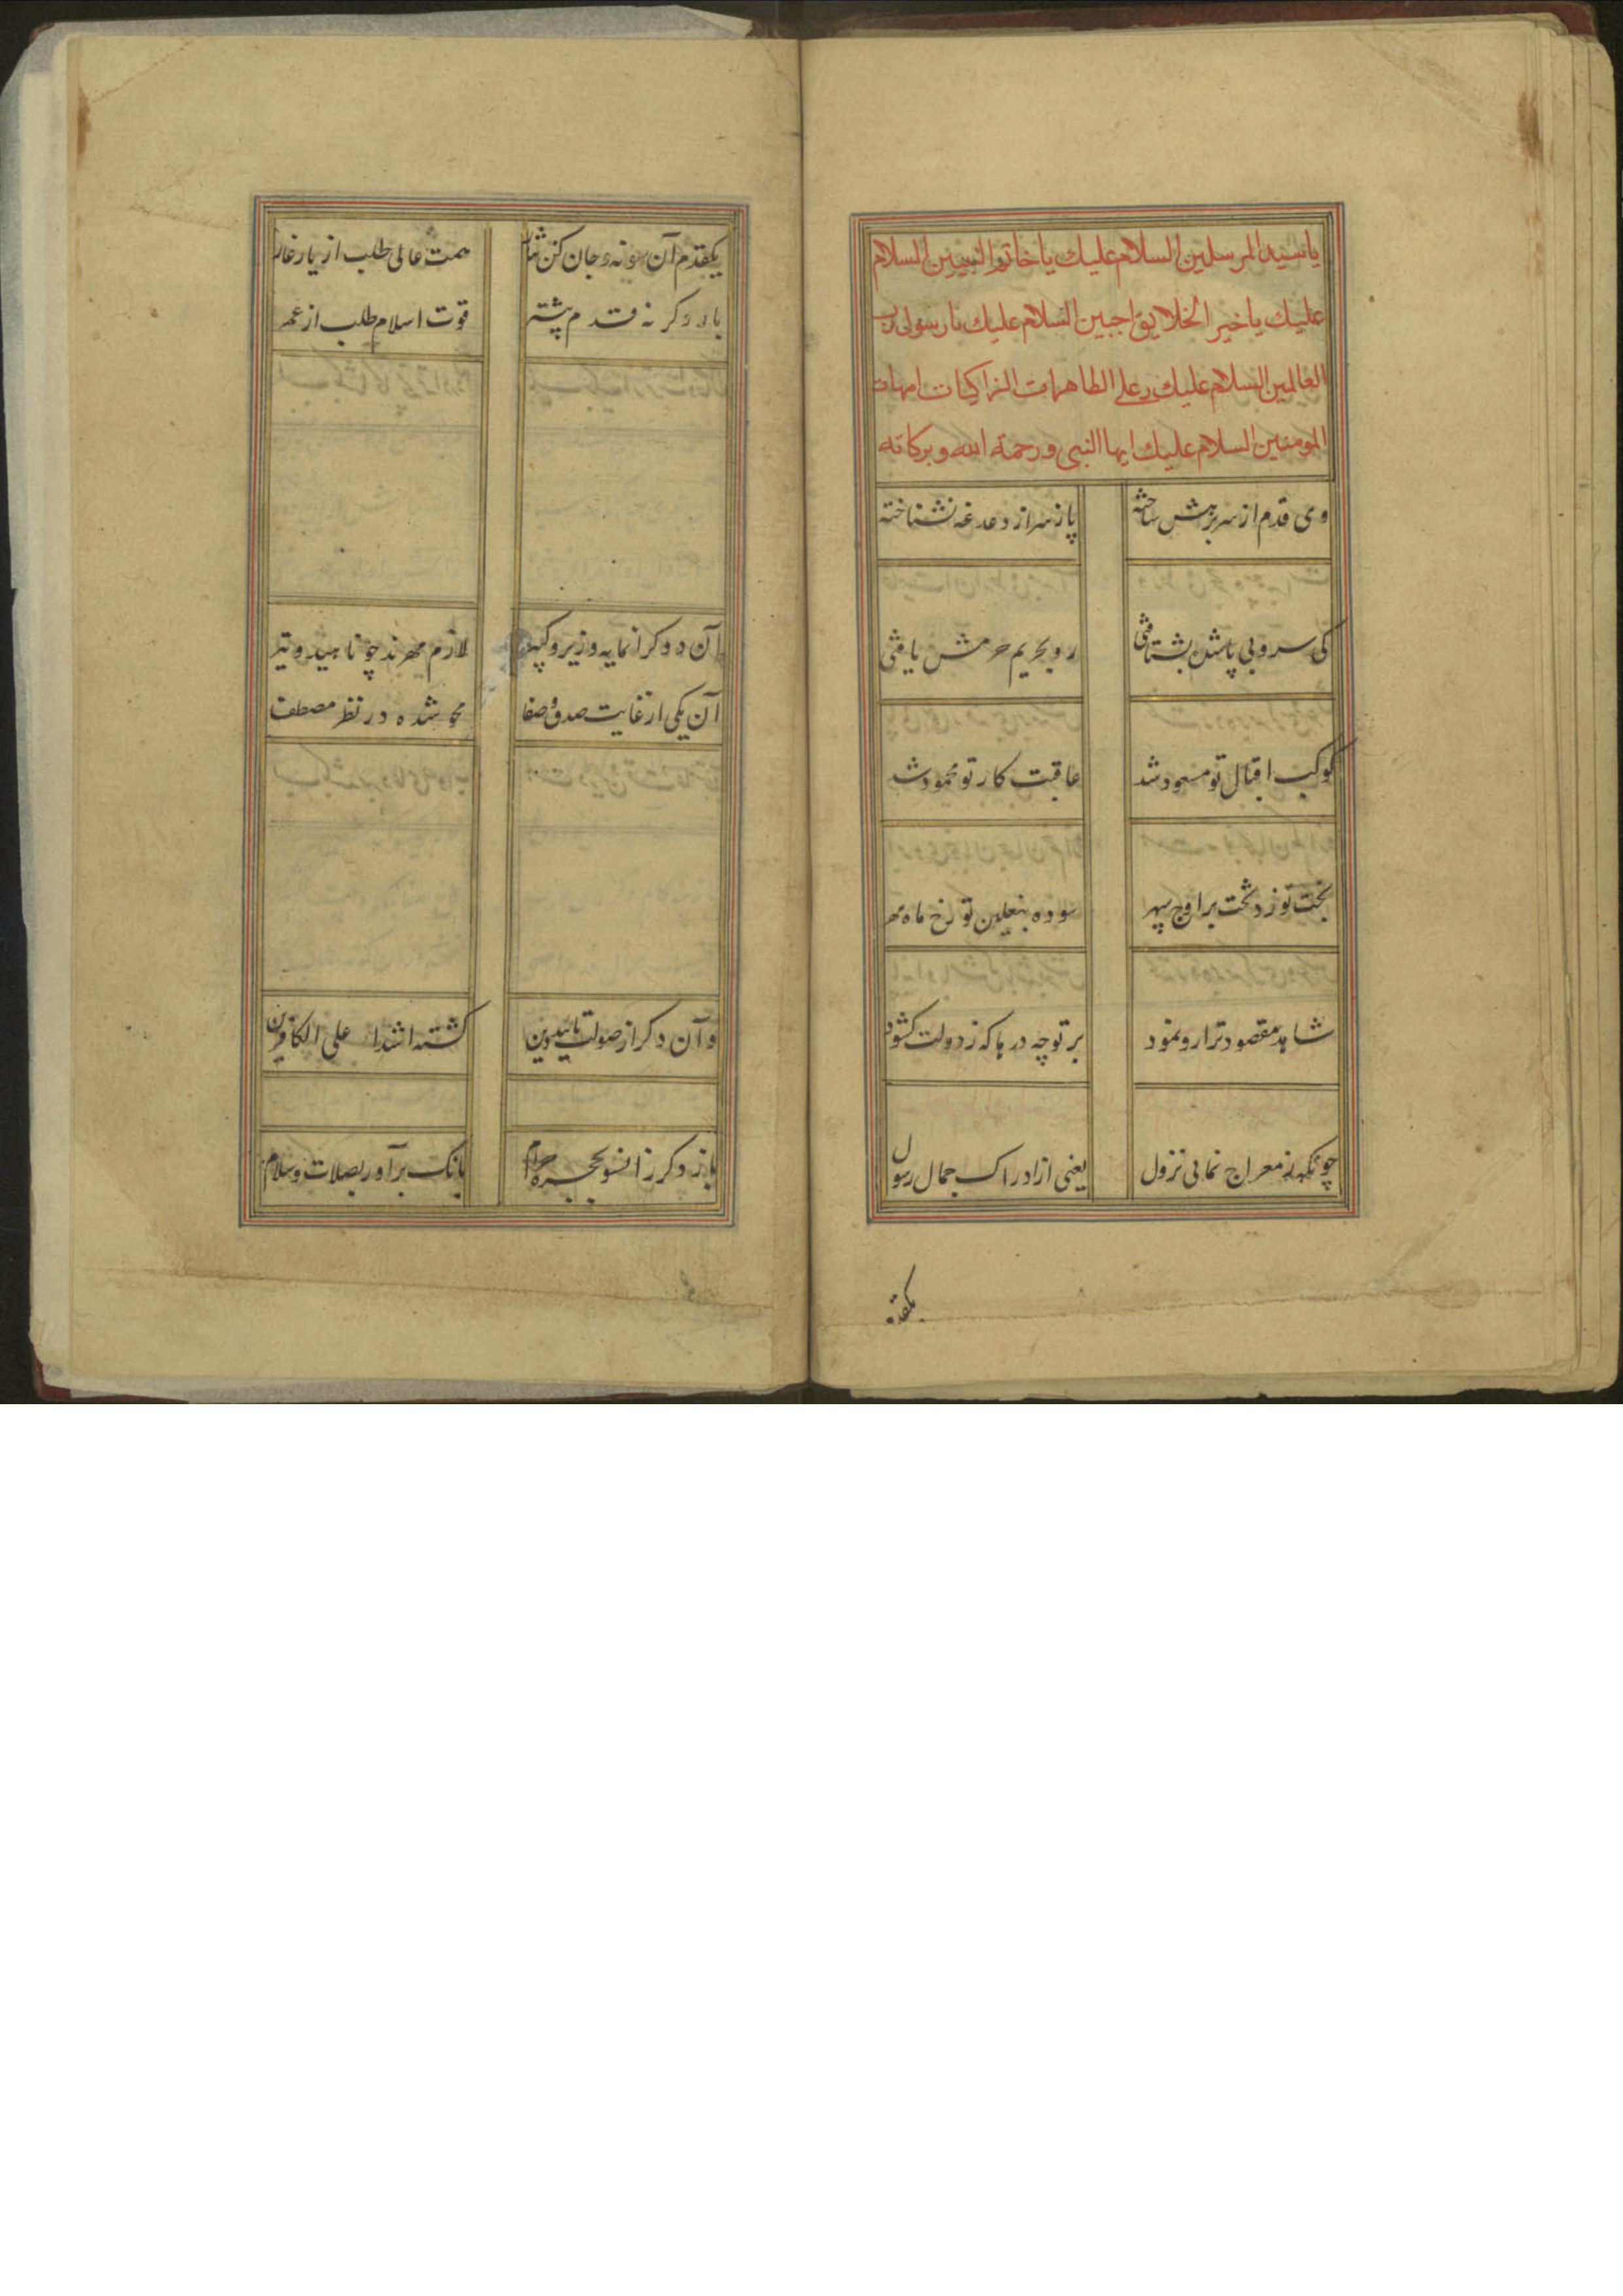 يا سيد المرسلين السلام عليك يا خاتم النبيين السلام
عليك يا خير الخلايق اجبين السلام عليك يا رسول رب
العالمين السلام عليك و على الطاهرات الزاكيات امهات
المومنين السلام عليك ايها النبي و رحمة الله و بركاته
وی قدم از سر برهش ساخته پا ز سر از دغدغه نشناخته
کی سر و بی پا شدن بشتافتی رو بحریم حرمش یافتی
کوکب اقبال تو مسعود شد عاقبت کار تو محمود شد
بخت تو زد تخت بر اوج سپهر سوده بنعلین تو رخ ماه مهر
شاهد مقصود ترا رو نمود بر تو چه درها که ز دولت کشود
چونکه ز معراج نمائی نزول یعنی از ادراک جمال رسول
یکقدم
یکقدم آن سو نه و جان کن نثار همت عالی طلب از یار غار
باز دکر نه قدم پشتر قوت اسلام طلب از عمر
آن دو کرانمایه وزیر و کبیر لازم مهرند چو ناهید و تیر
آن یکی از غایت صدق و صفا محو شده در نظر مصطفی
و آن دکر از صولت تایید دین کشته اشدا علی الکافرین
باز دکر رز انسو بحجره حرام بانک برآور بصلات و سلام